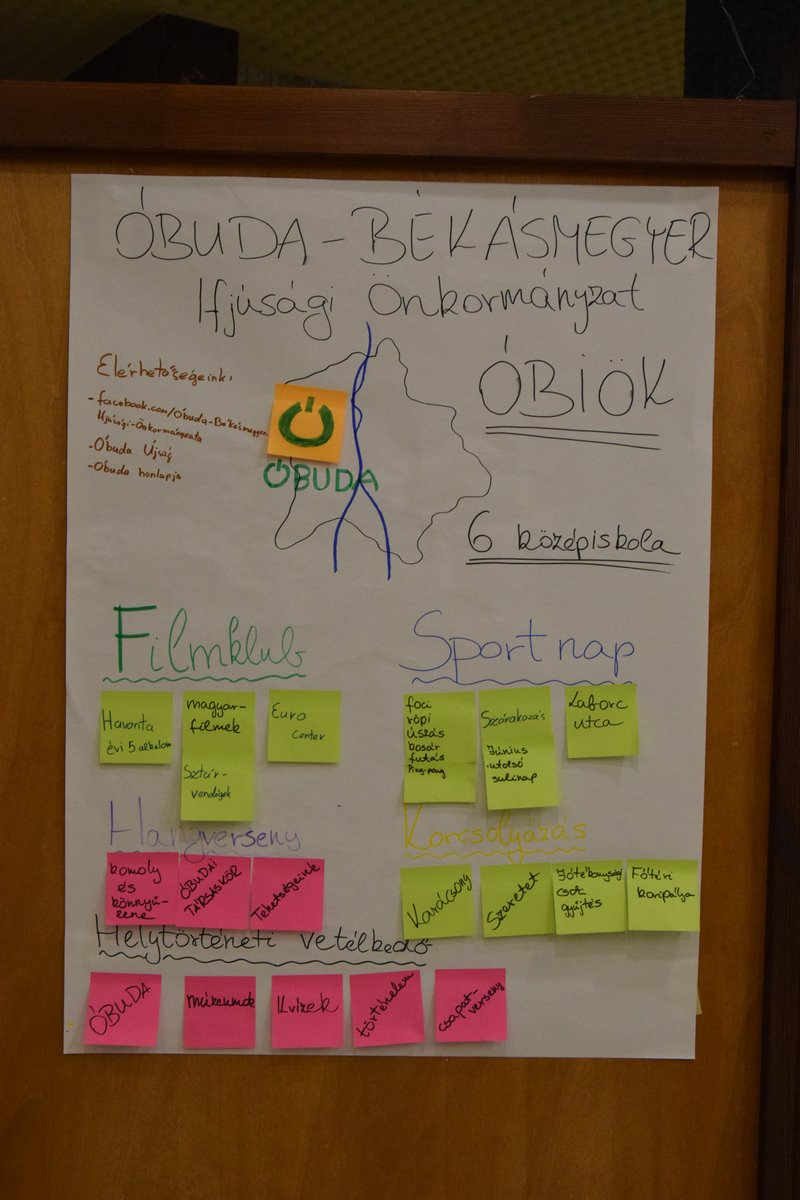 ÓBUDA-BÉKÁSMEGYER
Ifjúsági Önkormányzat
ÓBIÖK
Elérhetőségeink:
- facebook.com/Óbuda-Békásmegyer
Ifjúsági-Önkormányzata
- Óbuda Újság
- Óbuda honlapja
ÓBUDA
6 középiskola
Filmklub
Havonta
évi 5 alkalom
magyar-
filmek
Sztár-
vendégek
Euro
Center
Sport nap
foci
röpi
úszás
kosár
futás
Ping-pong
Szórakozás
Június
utolsó
sulinap
Laborc
utca
Hangverseny
komoly
és
könnyű-
zene
ÓBUDAI
TÁRSASKÖR
Tehetségeink
Korcsolyázás
Karácsony
Szeretet
Jótékonysági
csoki
gyűjtés
Főtéri
koripálya
Helytörténeti vetélkedő
ÓBUDA
múzeumok
Kvízek
történelem
csapat-
verseny